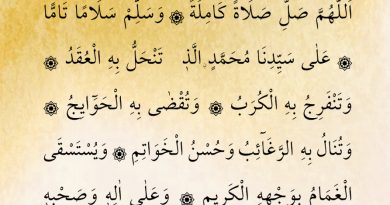 اَللّٰهُمَّ صَلِّ صَلَاةً كَامِلَةً ۞ وَسَلِّمْ سَلَامًا تَامًّا
۞ عَلٰى سَيِّدِنَا مُحَمَّدٍ الَّذِ تَنْحَلُّ بِهِ الْعُقَدُ ۞
وَتَنْفَرِجُ بِهِ الْكُرَبُ ۞ وَتُقْضٰى بِهِ الْحَوَٓايِجُ ۞
وَتُنَالُ بِهِ الرَّغَٓائِبُ وَحُسْنُ الْخَوَاتِمِ ۞ وَيُسْتَسْقَى
الْغَمَامُ بِوَجْهِهِ الْكَرِيمِ ۞ وَعَلٰى اٰلِهِ وَصَحْبِهِ